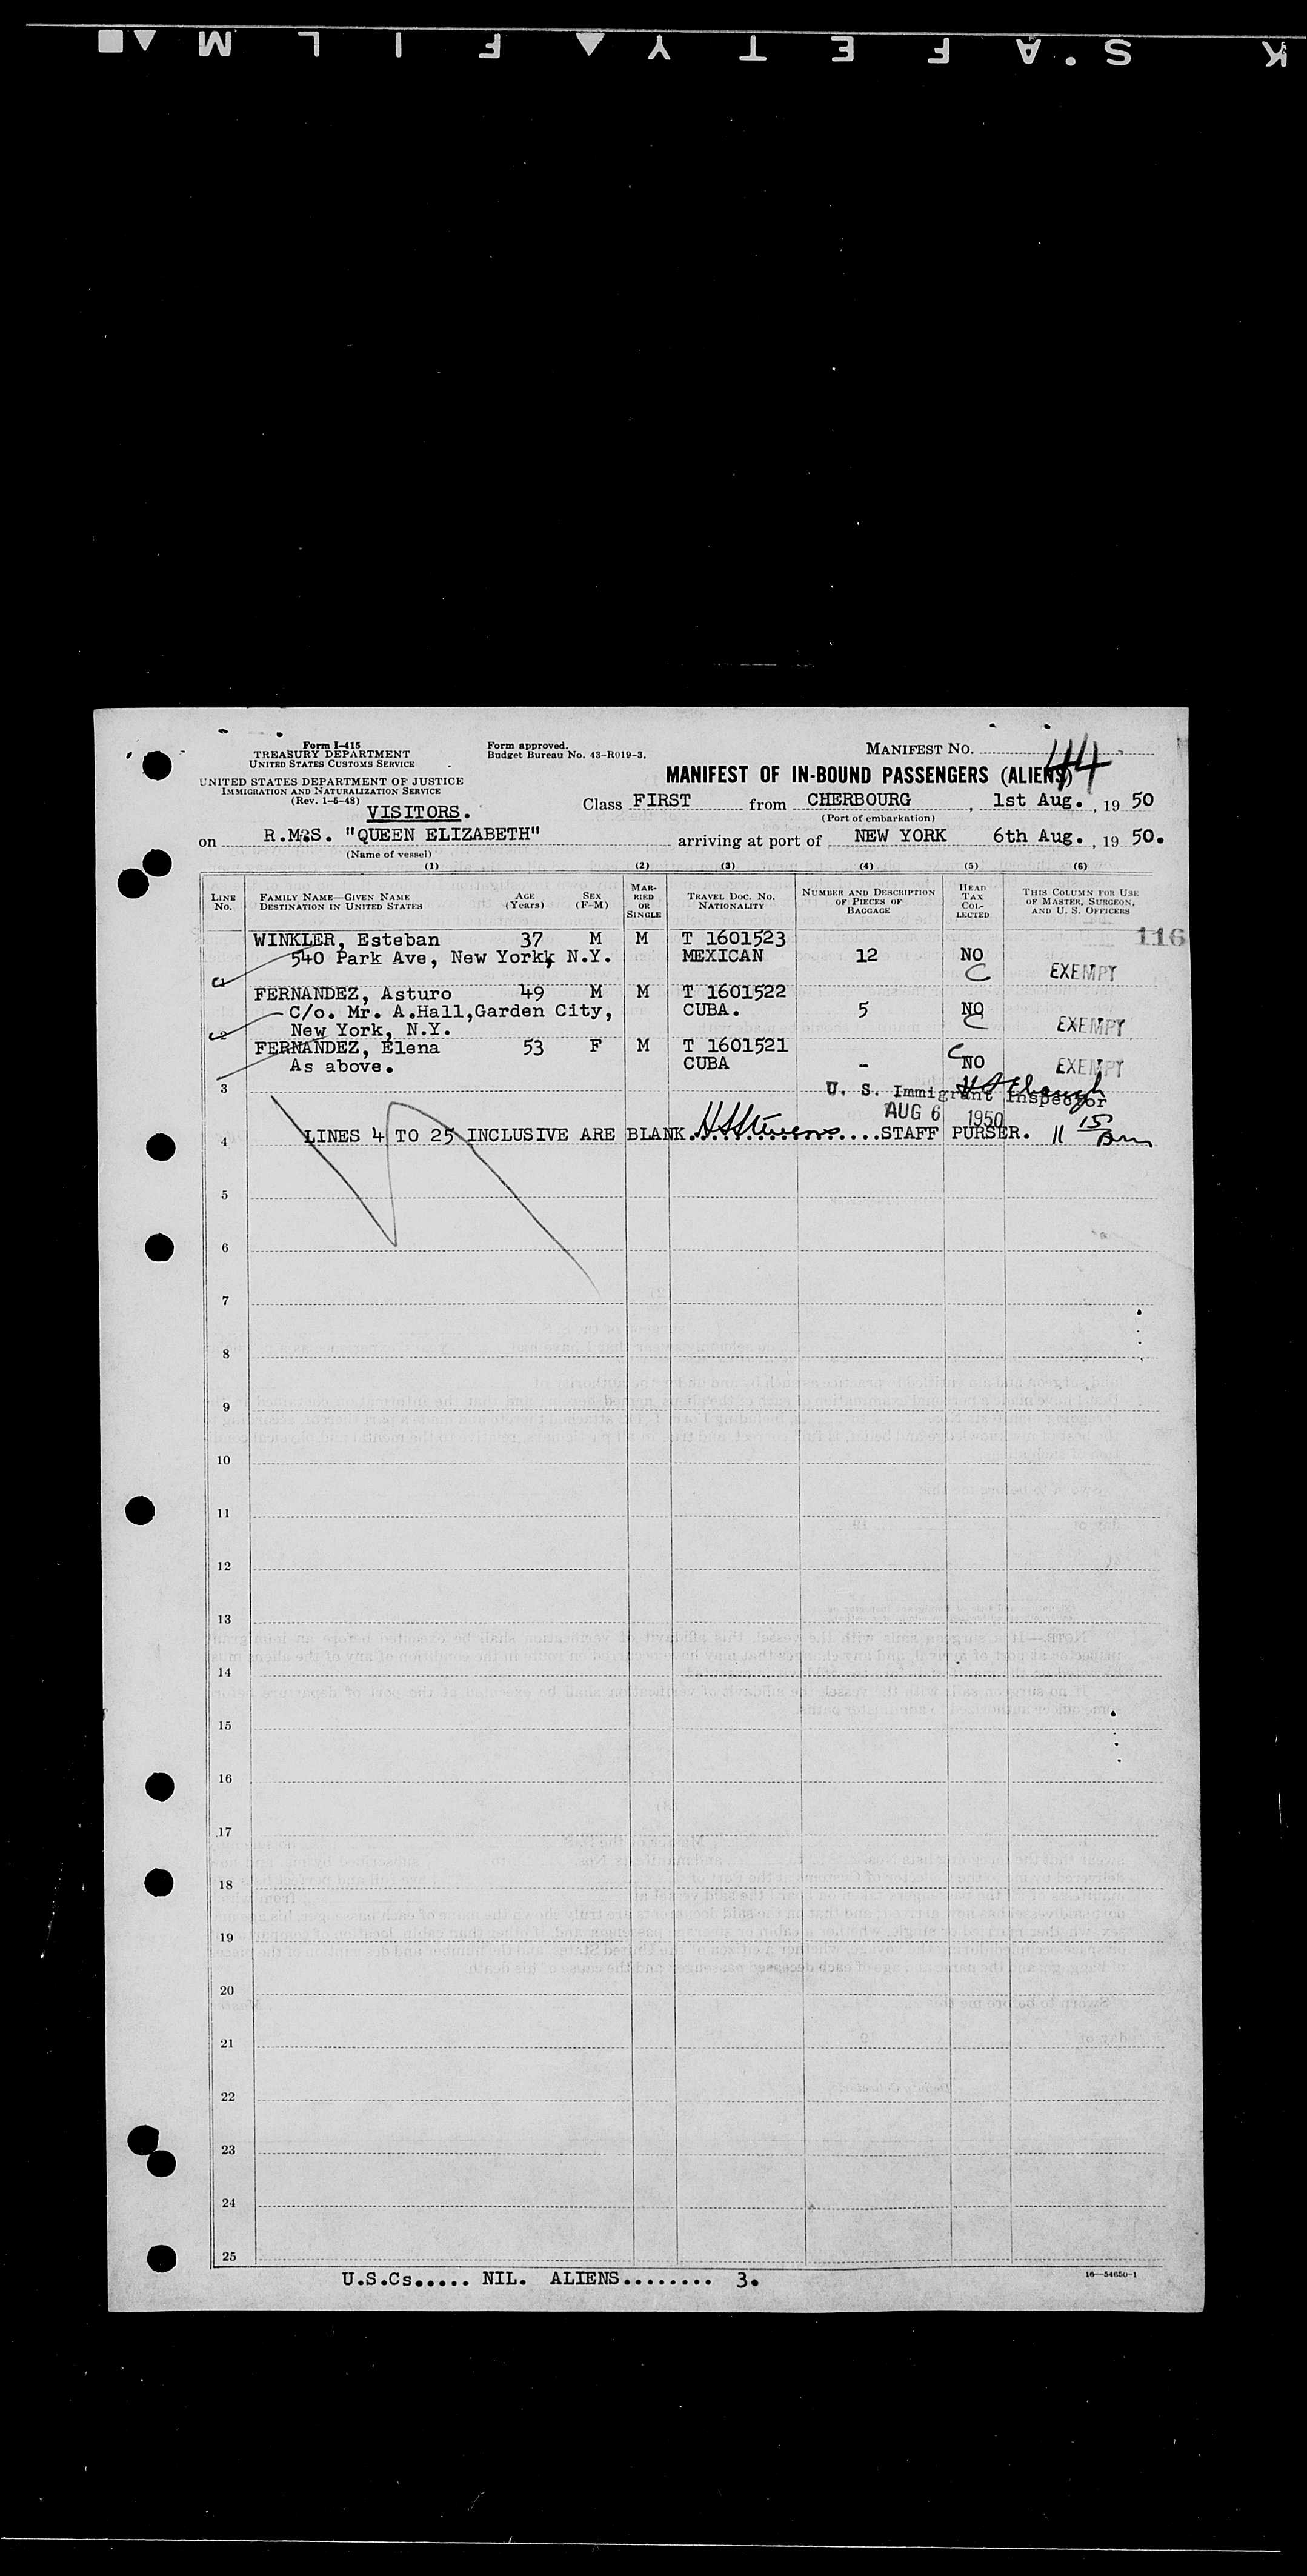 K S • A F E T Y ▲ F I L M
Form I-415
TREASURY DEPARTMENT
UNITED STATES CUSTOMS SERVICE
UNITED STATES DEPARTMENT OF JUSTICE
IMMIGRATION AND NATURALIZATION SERVICE
(Rev. 1-5-48)
Form approved.
Budget Bureau No. 43-R019-3.
MANIFEST NO. 44
MANIFEST OF IN-BOUND PASSENGERS (ALIENS)
VISITORS.
Class FIRST from CHERBOURG, 1st Aug., 19 50
(Port of embarkation)
on R.M.S. "QUEEN ELIZABETH" arriving at port of NEW YORK 6th Aug., 19 50.
(Name of vessel)
(1) (2) (3) (4) (5) (6)
LINE NO.
FAMILY NAME—GIVEN NAME DESTINATION IN UNITED STATES
AGE (Years)
SEX (F-M)
MARRIED OR SINGLE
TRAVEL DOC. NO. NATIONALITY
NUMBER AND DESCRIPTION OF PIECES OF BAGGAGE
HEAD TAX COLLECTED
THIS COLUMN FOR USE OF MASTER, SURGEON, AND U. S. OFFICERS
116
WINKLER, Esteban 37 M M T 1601523
540 Park Ave, New York, N.Y. MEXICAN 12 NO
1 C EXEMPT
FERNANDEZ, Asturo 49 M M T 1601522
C/o. Mr. A.Hall,Garden City, CUBA. 5 NO
2 New York, N.Y. C EXEMPT
FERNANDEZ, Elena 53 F M T 1601521
As above. CUBA - C NO EXEMPT
3
U. S. Immigrant Inspector
AUG 6 1950
4 LINES 4 TO 25 INCLUSIVE ARE BLANK. H Stevens ....STAFF PURSER. 11 15
5
6
7
8
9
10
11
12
13
14
15
16
17
18
19
20
21
22
23
24
25
U.S.Cs..... NIL. ALIENS........ 3.
16—54650-1